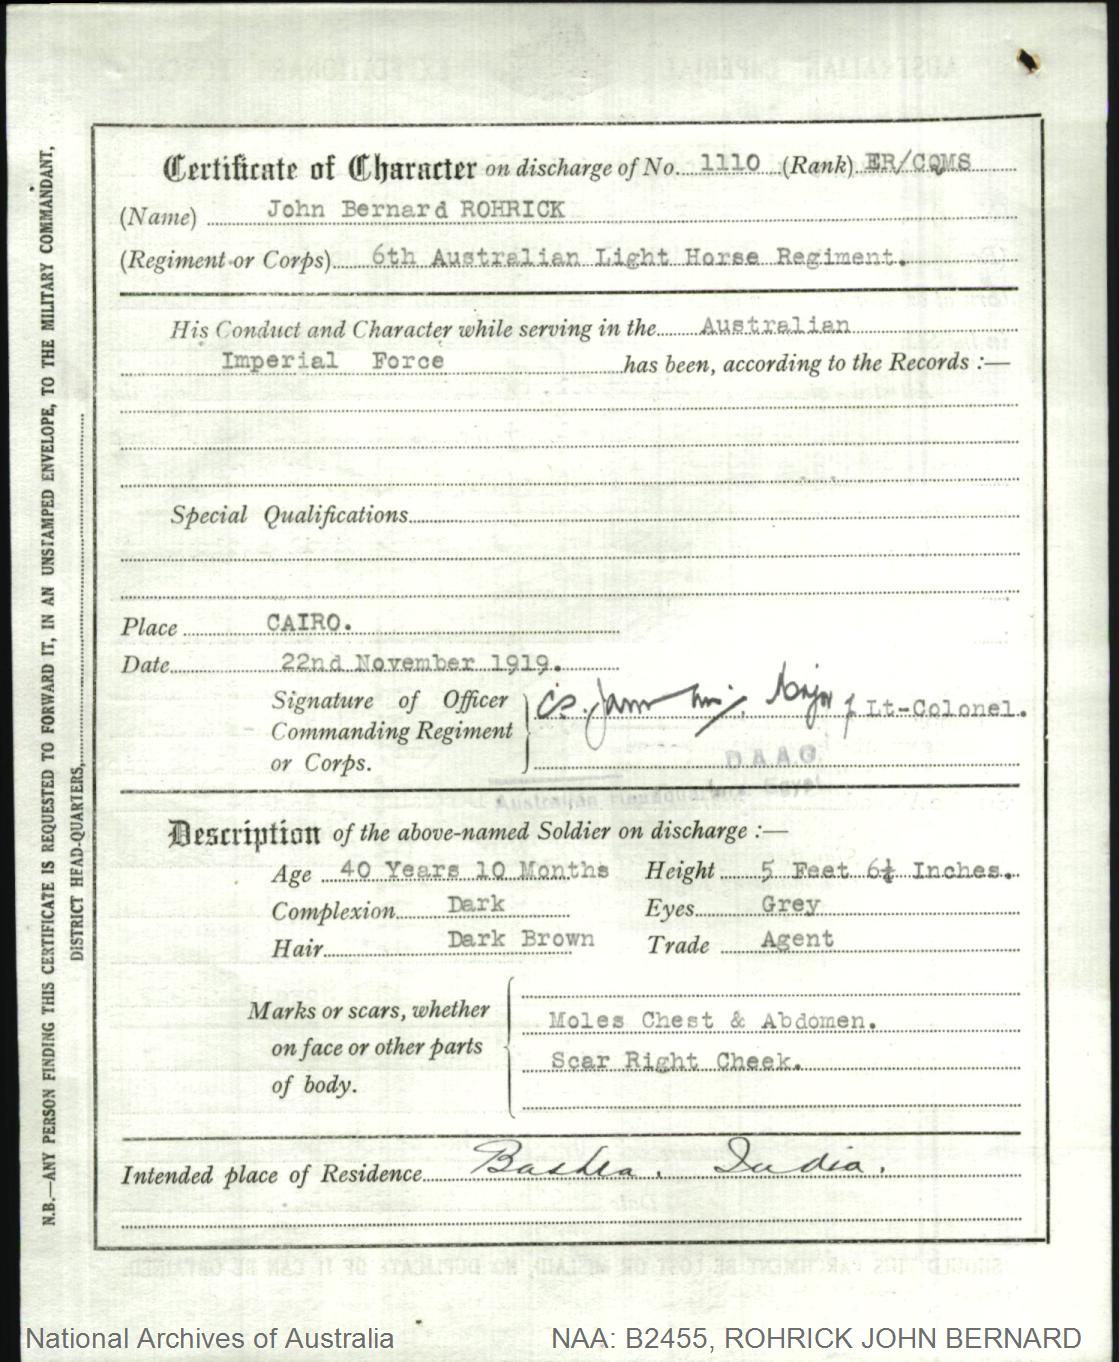 Certificate of Character on discharge of No. 1110 (Rank) ER/CQMS
(Name) John Bernard ROHRICK
(Regiment or Corps) 6th Australian Light Horse Regiment.
His Conduct and Character while serving in the Australian
Imperial Force has been, according to the Records :—
Special Qualifications
Place CAIRO.
Date 22nd November 1919.
Signature of Officer
Commanding Regiment
or Corps.
Major f Lt-Colonel.
DAAG
Australian Headquarters Egypt
Description of the above-named Soldier on discharge :—
Age 40 Years 10 Months Height 5 Feet 6½ Inches.
Complexion Dark Eyes Grey
Hair Dark Brown Trade Agent
Marks or scars, whether
on face or other parts
of body.
Moles Chest & Abdomen.
Scar Right Cheek.
Intended place of Residence Bashra. India.
N.B.—ANY PERSON FINDING THIS CERTIFICATE IS REQUESTED TO FORWARD IT, IN AN UNSTAMPED ENVELOPE, TO THE MILITARY COMMANDANT,
DISTRICT HEAD-QUARTERS,
National Archives of Australia NAA: B2455, ROHRICK JOHN BERNARD